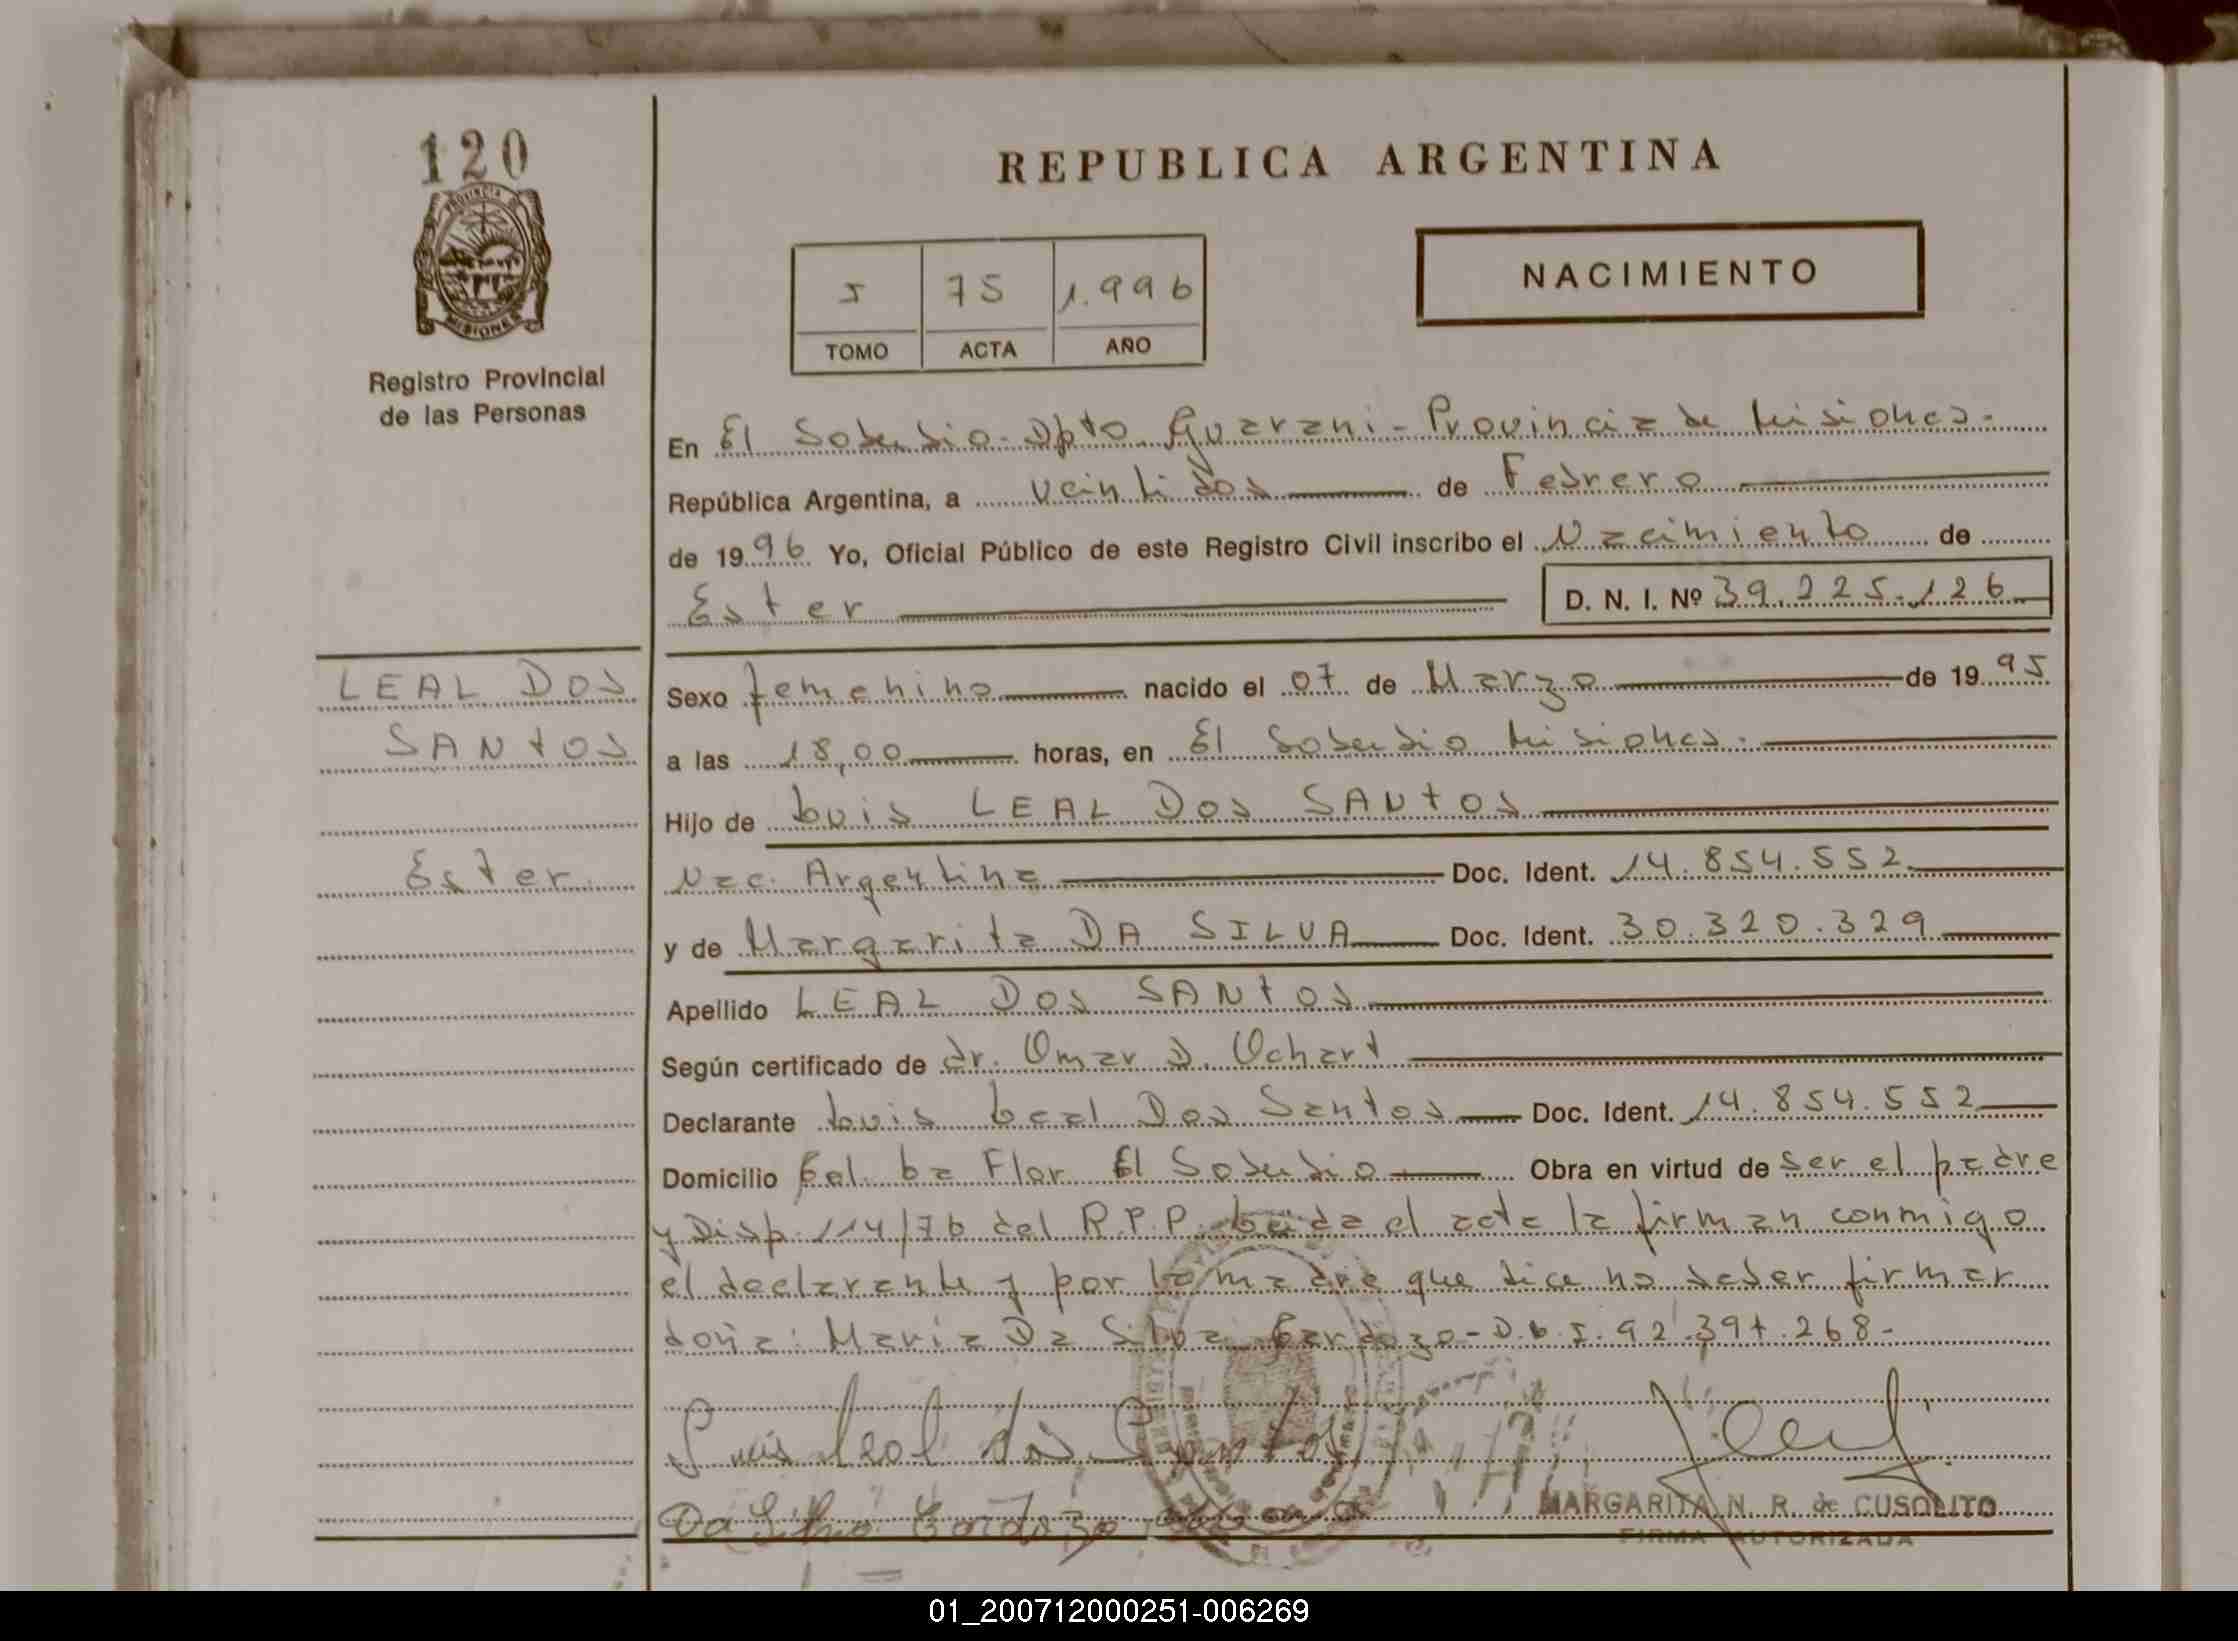 120
PROVINCIA DE
MISIONES
Registro Provincial
de las Personas
REPUBLICA ARGENTINA
5 75 1.996
TOMO ACTA AÑO
NACIMIENTO
En El Soberbio - Dpto Guarani - Provincia de Misiones.
República Argentina, a veintidos de Febrero
de 1996 Yo, Oficial Público de este Registro Civil inscribo el Nacimiento de
Ester D. N. I. Nº 39.225.126
LEAL DOS
SANTOS
Ester
Sexo femenino nacido el 07 de Marzo de 1995
a las 18,00 horas, en El Soberbio Misiones.
Hijo de Luis LEAL DOS SANTOS
Nac. Argentina Doc. Ident. 14.854.552
y de Margarita DA SILVA Doc. Ident. 30.320.329
Apellido LEAL DOS SANTOS
Según certificado de dr. Omar D. Ochart
Declarante Luis Leal Dos Santos Doc. Ident. 14.854.552
Domicilio Col. La Flor El Soberbio Obra en virtud de ser el padre
y Disp. 114/76 del R.P.P. Leida el acta la firman conmigo
el declarante y por la madre que dice no saber firmar
doña: Maria Da Silva Cardozo - D.N.I. 92.397.268-
Luis Leal dos Santos
Da Silva Cardozo
MARGARITA N. R. de CUSOLITO
FIRMA AUTORIZADA
01_200712000251-006269